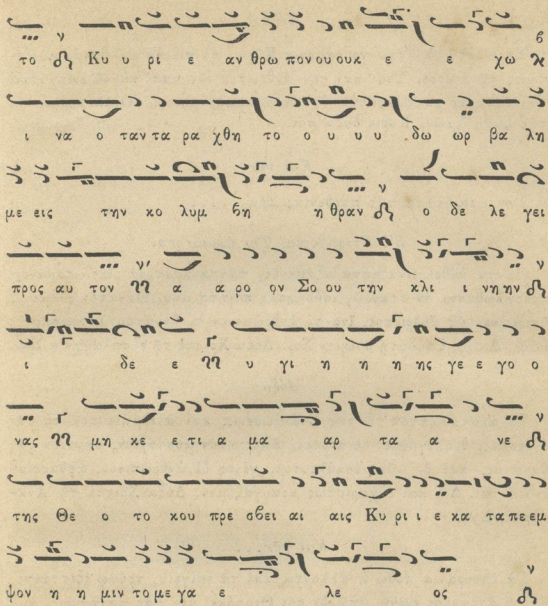 το Κυ υ ρι ε αν θρω πον ου ουκ ε ε χω
ι να ο ταν τα ρα χθη το ο υ υ υ δω ωρ βα λη
με εις την κο λυμ βη η θραν ο δε λε γει
προς αυ τον α α ρο ον Σο ου την κλι ι νη ην
ι δε ε υ γι η η η ης γε ε γο ο
νας μη κε ε τι α μα αρ τα α νε
της Θε ο το κου πρε σβει αι αις Κυ ρι ι ε κα τα πε εμ
ψον η η μιν το με γα ε λε ος